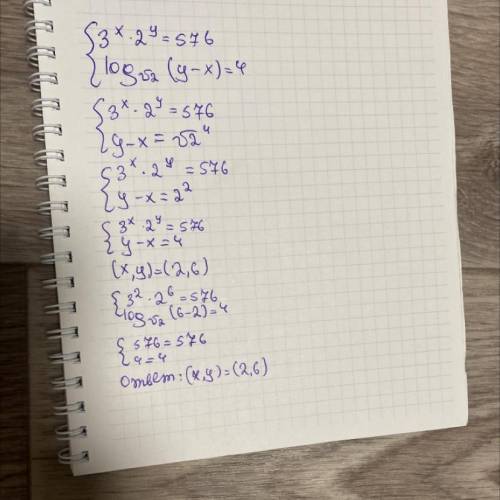 {3ˣ · 2ʸ = 576
{log_√2 (y-x) = 4
{3ˣ · 2ʸ = 576
{y-x = √2⁴
{3ˣ · 2ʸ = 576
{y-x = 2²
{3ˣ · 2ʸ = 576
{y-x = 4
(x,y)=(2,6)
{3² · 2⁶ = 576
{log_√2 (6-2) = 4
{576 = 576
{4 = 4
ответ: (x,y)=(2,6)